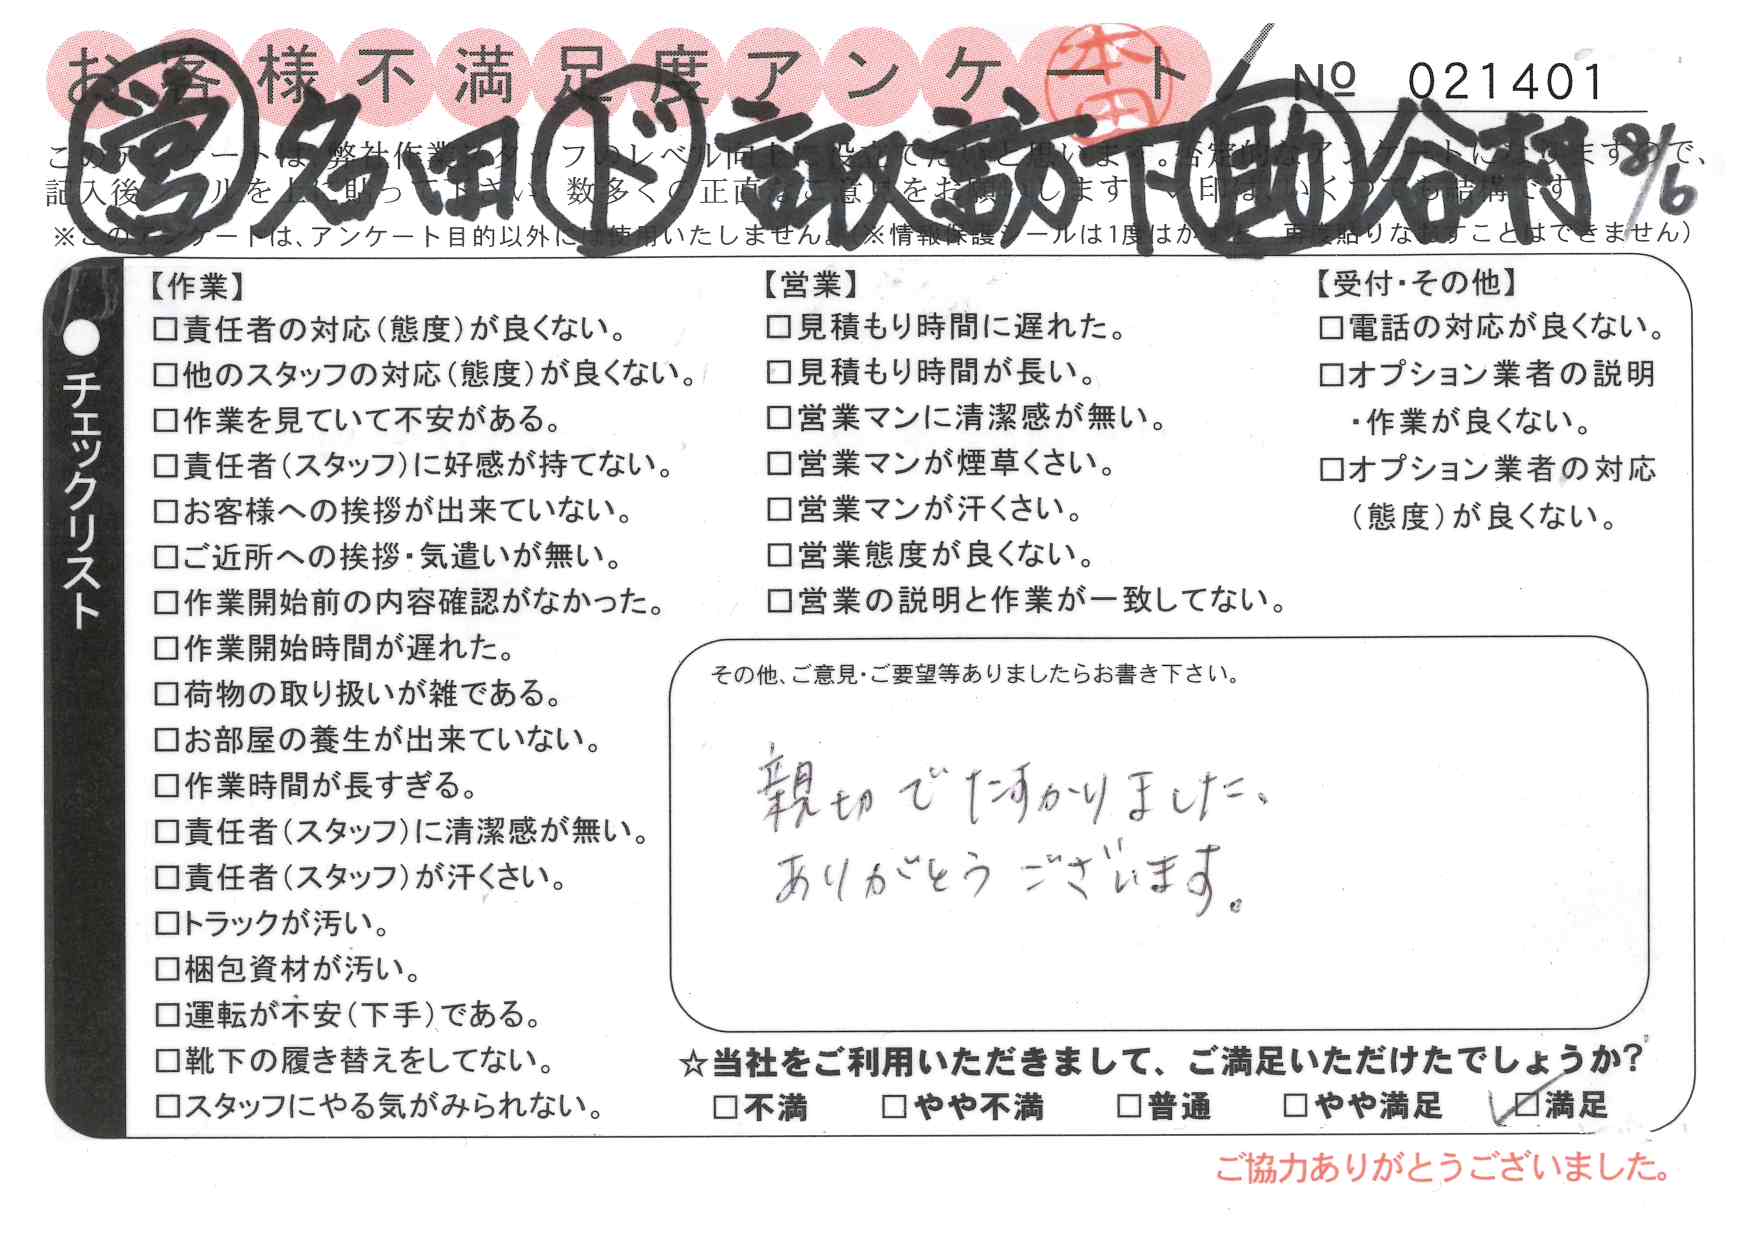 お客様不満足度アンケート
本田
№ 021401
営 名田 ド 諏訪下 助 谷村 8/6
※このアンケートは、アンケート目的以外には使用いたしません。(※情報保護シールは1度はがすと、再度貼りなおすことはできません)
●チェックリスト
【作業】
□責任者の対応(態度)が良くない。
□他のスタッフの対応(態度)が良くない。
□作業を見ていて不安がある。
□責任者(スタッフ)に好感が持てない。
□お客様への挨拶が出来ていない。
□ご近所への挨拶・気遣いが無い。
□作業開始前の内容確認がなかった。
□作業開始時間が遅れた。
□荷物の取り扱いが雑である。
□お部屋の養生が出来ていない。
□作業時間が長すぎる。
□責任者(スタッフ)に清潔感が無い。
□責任者(スタッフ)が汗くさい。
□トラックが汚い。
□梱包資材が汚い。
□運転が不安(下手)である。
□靴下の履き替えをしてない。
□スタッフにやる気がみられない。
【営業】
□見積もり時間に遅れた。
□見積もり時間が長い。
□営業マンに清潔感が無い。
□営業マンが煙草くさい。
□営業マンが汗くさい。
□営業態度が良くない。
□営業の説明と作業が一致してない。
【受付・その他】
□電話の対応が良くない。
□オプション業者の説明
・作業が良くない。
□オプション業者の対応
(態度)が良くない。
その他、ご意見・ご要望等ありましたらお書き下さい。
親切でたすかりました、
ありがとうございます。
☆当社をご利用いただきまして、ご満足いただけたでしょうか?
□不満 □やや不満 □普通 □やや満足 ☑満足
ご協力ありがとうございました。